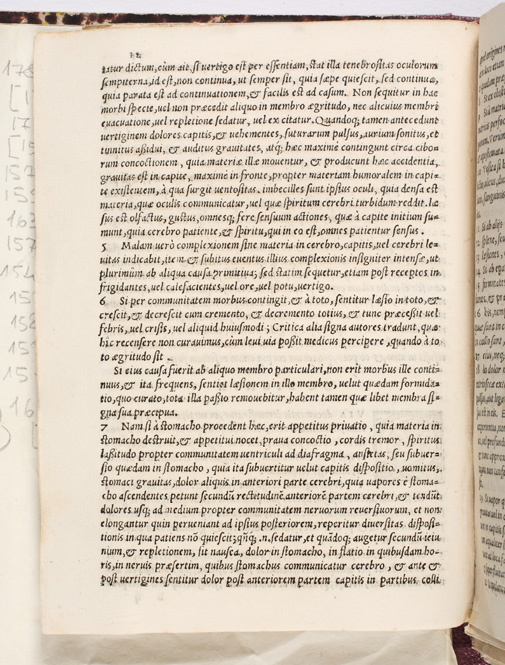 tatur dictum, cùm ait, si vertigo est per essentiam, stat illa tenebrositas oculorum
sempiterna, id est, non continua, ut semper sit, quia sæpe quiescit, sed continua,
quia parata est ad continuationem, & facilis est ad casum. Non sequitur in hac
morbi specie, uel non præcedit aliquo in membro ægritudo, nec alicuius membri
euacuatione, uel repletione sedatur, uel excitatur. Quandoq; tamen antecedunt
uertiginem dolores capitis, & uehementes, suturarum pulsus, aurium sonitus, et
tinnitus aßidui, & auditus grauitates, atq; hæc maximè contingunt circa cibo-
rum concoctionem, quia materiæ illæ mouentur, & producunt hæc accidentia,
grauitas est in capite, maximè in fronte, propter materiam humoralem in capi-
te existentem, à qua surgit uentositas. imbecilles sunt ipsius oculi, quia densa est
materia, quæ oculis communicatur, uel quæ spiritum cerebri turbidum reddit. læ
sus est olfactus, gustus, omnesq; ferè sensuum actiones, quæ à capite initium su-
munt, quia cerebro patiente, & spiritu, qui in eo est, omnes patientur sensus.
5 Malam uerò complexionem sine materia in cerebro, capitis, uel cerebri le-
uitas indicabit, item & subitus euentus illius complexionis insigniter intensæ, ut
plurimùm ab aliqua causa primitiua; sed statim sequetur, etiam post receptos in
frigidantes, uel calefacientes, uel ore, uel potu, uertigo.
6 Si per communitatem morbus contingit, & à toto, sentitur læsio in toto, &
crescit, & decrescit cum cremento, & decremento totius, & tunc præceßit uel
febris, uel crisis, uel aliquid huiusmodi; Critica alia signa autores tradunt, quæ
hic recensere non curauimus, cùm leui uia poßit medicus percipere, quando à to-
to ægritudo sit.
Si eius causa fuerit ab aliquo membro particulari, non erit morbus ille conti-
nuus, & ita frequens, sentiet læsionem in illo membro, uelut quædam formida-
tio, quo curato, tota illa paßio remouebitur, habent tamen quæ libet membra si-
gna sua præcipua.
7 Nam si à stomacho procedent hæc, erit appetitus priuatio, quia materia in
stomacho destruit, & appetitui nocet, praua concoctio, cordis tremor, spiritus
laßitudo propter communitatem uentriculi ad diafragma, seu subuer-
sio quædam in stomacho, quia ita subuertitur uelut capitis dispositio, uomitus,
stomaci grauitas, dolor aliquis in anteriori parte cerebri, quia uapores è stoma-
cho ascendentes petunt secundũ rectitudinẽ anteriorẽ partem cerebri, & tendũt
dolores usq; ad medium propter communitatem neruorum reuersiuorum, et non
elongantur quin perueniant ad ipsius posteriorem, reperitur diuersitas disposi-
tionis in qua patiens nõ quiescit; sedatur, et quãdoq; augetur secundũ ieiu
nium, & repletionem, sit nausea, dolor in stomacho, inflatio in quibusdam ho-
ris, in neruis præsertim, quibus stomachus communicatur cerebro, & ante &
post uertigines sentitur dolor post anteriorem partem capitis in partibus colli